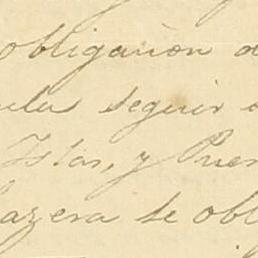 obligacion d
ulas seguir
Islas, y Puer
azera se obl